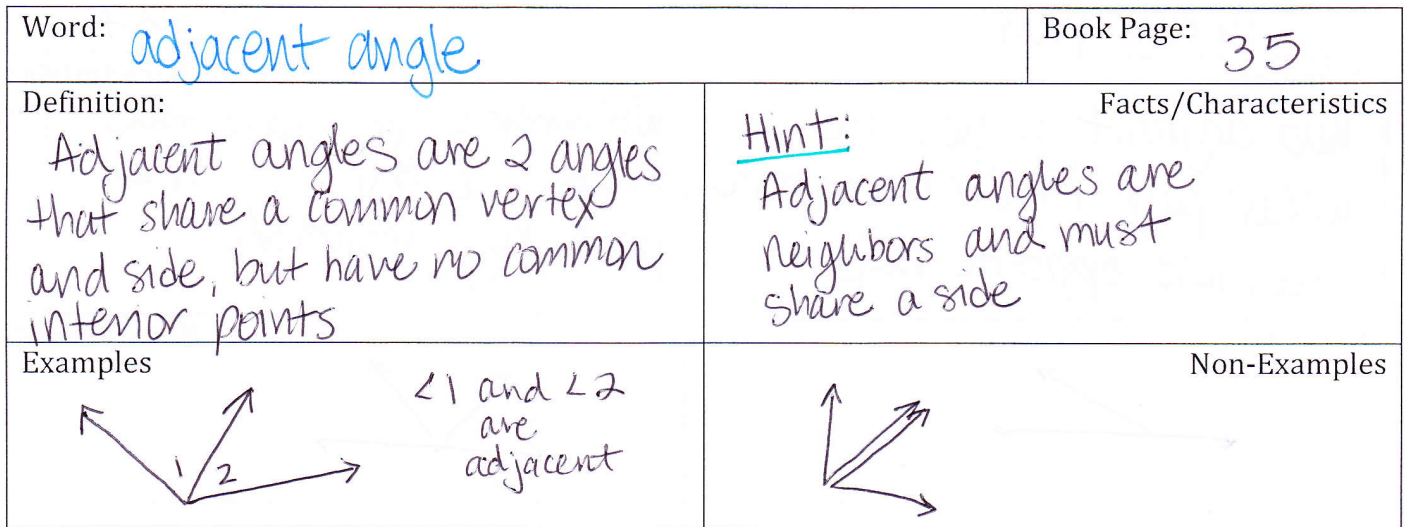 Word: adjacent angle
Book Page: 35
Definition:
Adjacent angles are 2 angles
that share a common vertex
and side, but have no common
interior points
Facts/Characteristics
Hint:
Adjacent angles are
neighbors and must
share a side
Examples
<1 and <2
are
adjacent
1 2
Non-Examples